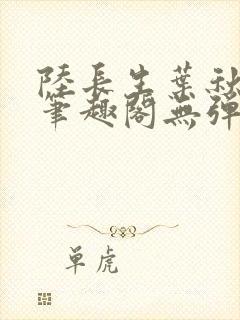 陸長生葉秋
筆趣閣無彈
单虎